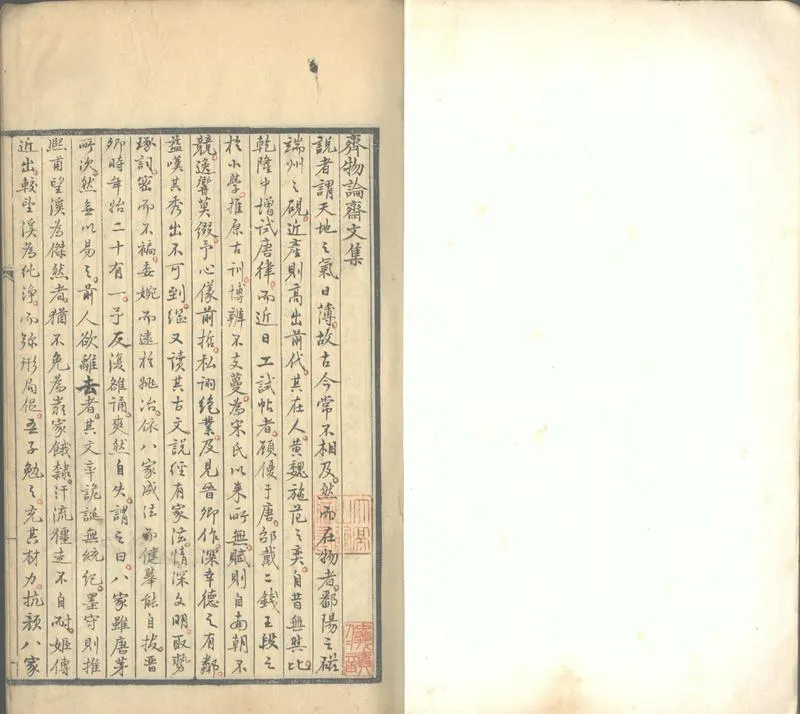 齊物論齋文集
說者謂天地之氣日薄故古今常不相及然而在物者鄱陽之磁
端州之硯近產則高出前代其在人黃魏施范之奕自昔無與比
乾隆中增試唐律而近日工試帖者頗優于唐邵戴二錢王段之
於小學推原古訓博辨不支蔓為宋氏以來所無賦則自南朝不
競逸響莫假予心儀前哲私詡絕業及見晉卿作深幸德之有鄰
益嘆其秀出不可到繼又讀其古文說經有家法情深文明取勢
琢詞密而不褊委婉而遠於姚冶依八家成法而健舉能自拔晉
卿時年始二十有一予反復雒誦爽然自失謂之曰八家雖唐茅
所次然無以易之前人欲離去者其文率詭誕無統紀墨守則推
熙甫望溪為傑然者猶不免為嚴家餓隸汗流僵走不自耐姬傳
近出較望溪為純淨而弥形局促吾子勉之充其材力抗顏八家